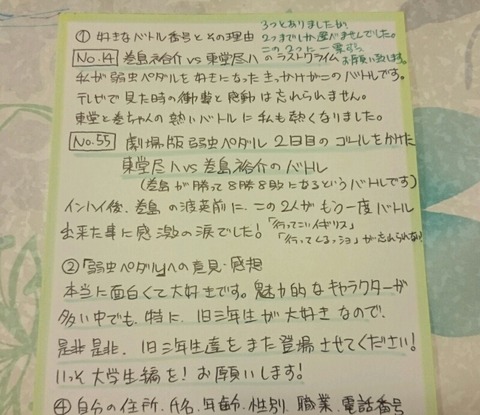 ① 好きなバトル番号とその理由
3つとありましたが
2つまでしか選べませんでした。
この2つに一票ずつ
お願い致します。
No.14 巻島裕介 vs 東堂尽八 のラストクライム
私が弱虫ペダルを好きになったきっかけがこのバトルです。
テレビで見た時の衝撃と感動は忘れられません。
東堂と巻ちゃんの熱いバトルに私も熱くなりました。
No.55 劇場版弱虫ペダル 2日目のゴールをかけた
東堂尽八 vs 巻島裕介のバトル
(巻島が勝って8勝8敗になるというバトルです)
インハイ後、巻島の渡英前に、この2人がもう一度バトル
出来た事に感激の涙でした!
「行ってこいイギリス」
「行ってくるっショ」が忘れられない
②「弱虫ペダル」への意見・感想
本当に面白くて大好きです。魅力的なキャラクターが
多い中でも、特に、旧三年生が大好きなので、
是非是非、旧三年生達をまた登場させてください!
いっそ大学生編を!お願いします!
④ 自分の住所、氏名、年齢、性別、職業、電話番号